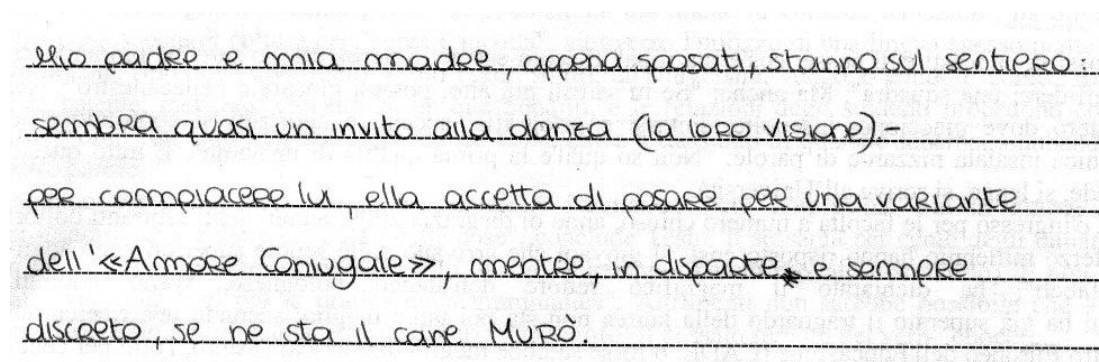 Mio padre e mia madre, appena sposati, stanno sul sentiero:
sembra quasi un invito alla danza (la loro visione)-
per compiacere lui, ella accetta di posare per una variante
dell'«Amore Coniugale», mentre, in disparte* e sempre
discreto, se ne sta il cane MURÒ.